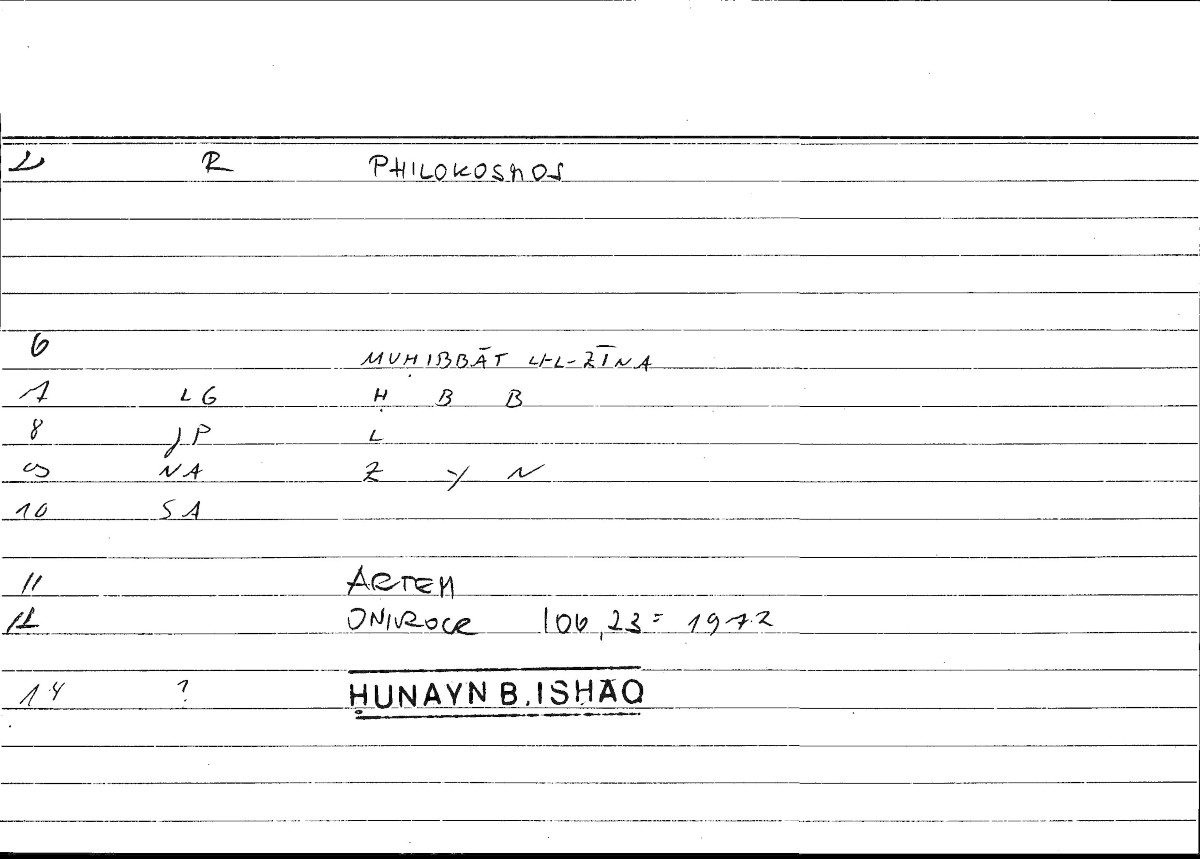 2 R PHILOKOSMOS
6 MUḤIBBĀT LI-L-ZĪNA
7 LG Ḥ B B
8 JP L
9 NA Z Y N
10 SA
11 ARTEM
12 ONIROCR 106,23 = 1972
14 ? ḤUNAYN B. ISḤĀQ